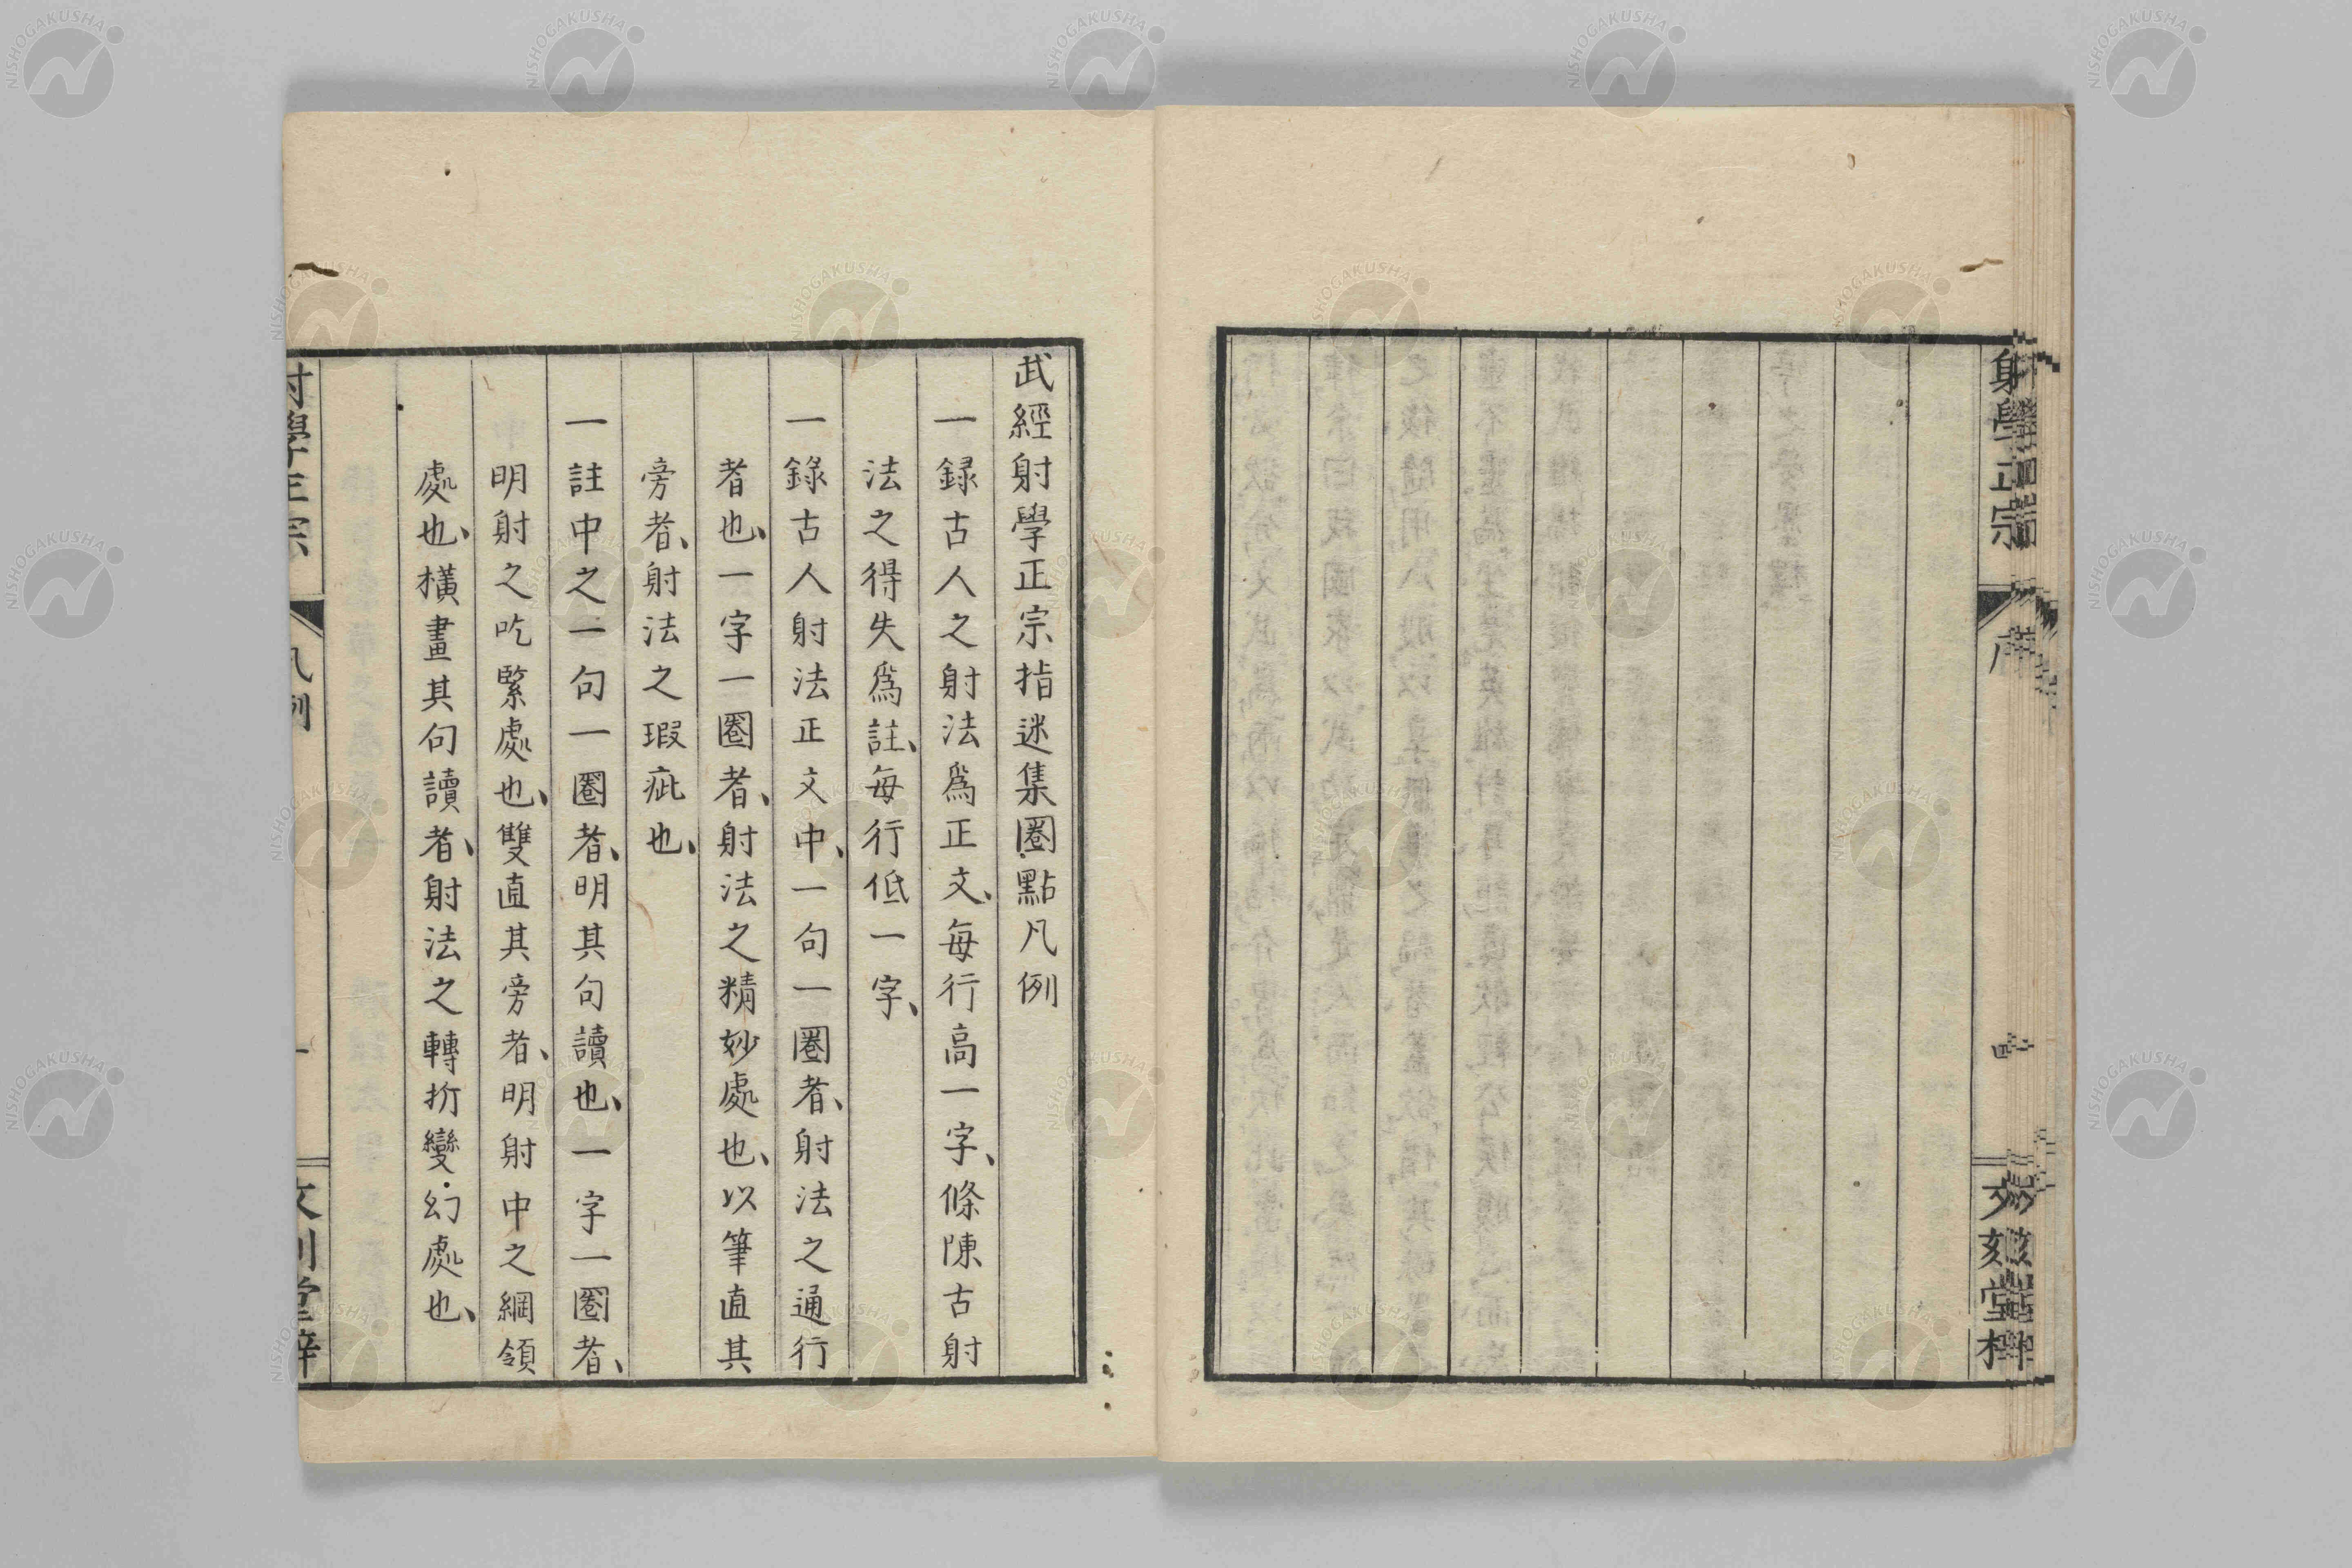 射學正宗
序
四
文刻堂梓
武經射學正宗指迷集圈點凡例
一録古人之射法爲正文、每行高一字、條陳古射
法之得失爲註、每行低一字、
一錄古人射法正文中、一句一圈者、射法之通行
者也、一字一圈者、射法之精妙處也、以筆直其
旁者、射法之瑕疵也、
一註中之一句一圈者、明其句讀也、一字一圈者、
明射之吃緊處也、雙直其旁者、明射中之綱領
處也、橫畫其句讀者、射法之轉折變幻處也、
射學正宗
凡例
一
文刻堂梓
NISHOGAKUSHA